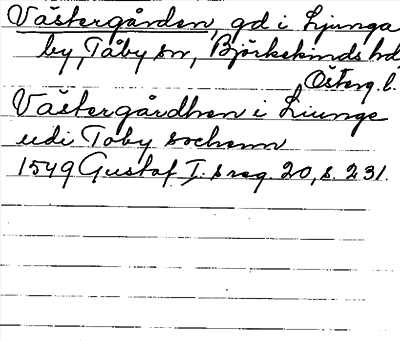 Västergården, gd i Ljunga
by, Tåby sn, Björkekinds hd,
Österg. l.
Västergårdhen i Liunge
udi Taby sochenn
1549 Gustaf I:s reg. 20, s. 231.